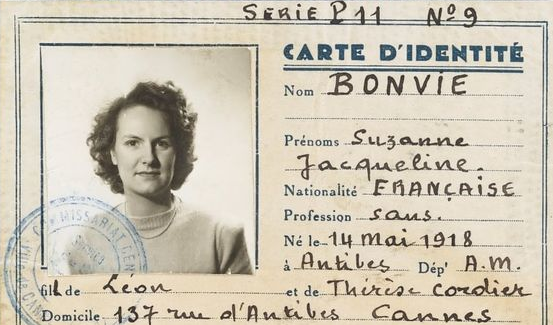 SERIE P 11 Nº 9
CARTE D'IDENTITÉ
Nom BONVIE
Prénoms Suzanne
Jacqueline.
Nationalité FRANÇAISE
Profession sans.
Né le 14 mai 1918
à Antibes Dépt A.M.
fill de Léon et de Thérèse Cordier
Domicile 137 rue d'Antibes Cannes
COMMISSARIAT